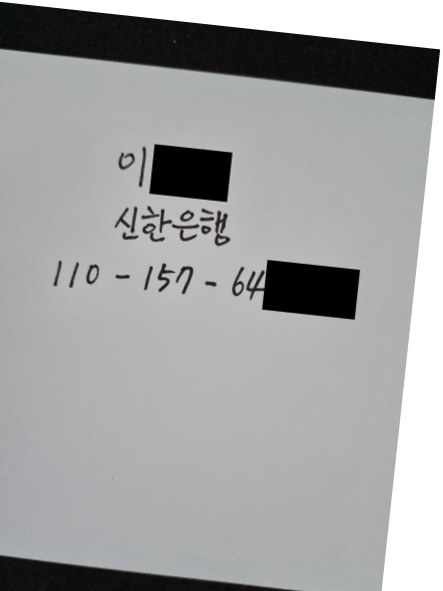 이
신한은행
110-157-64